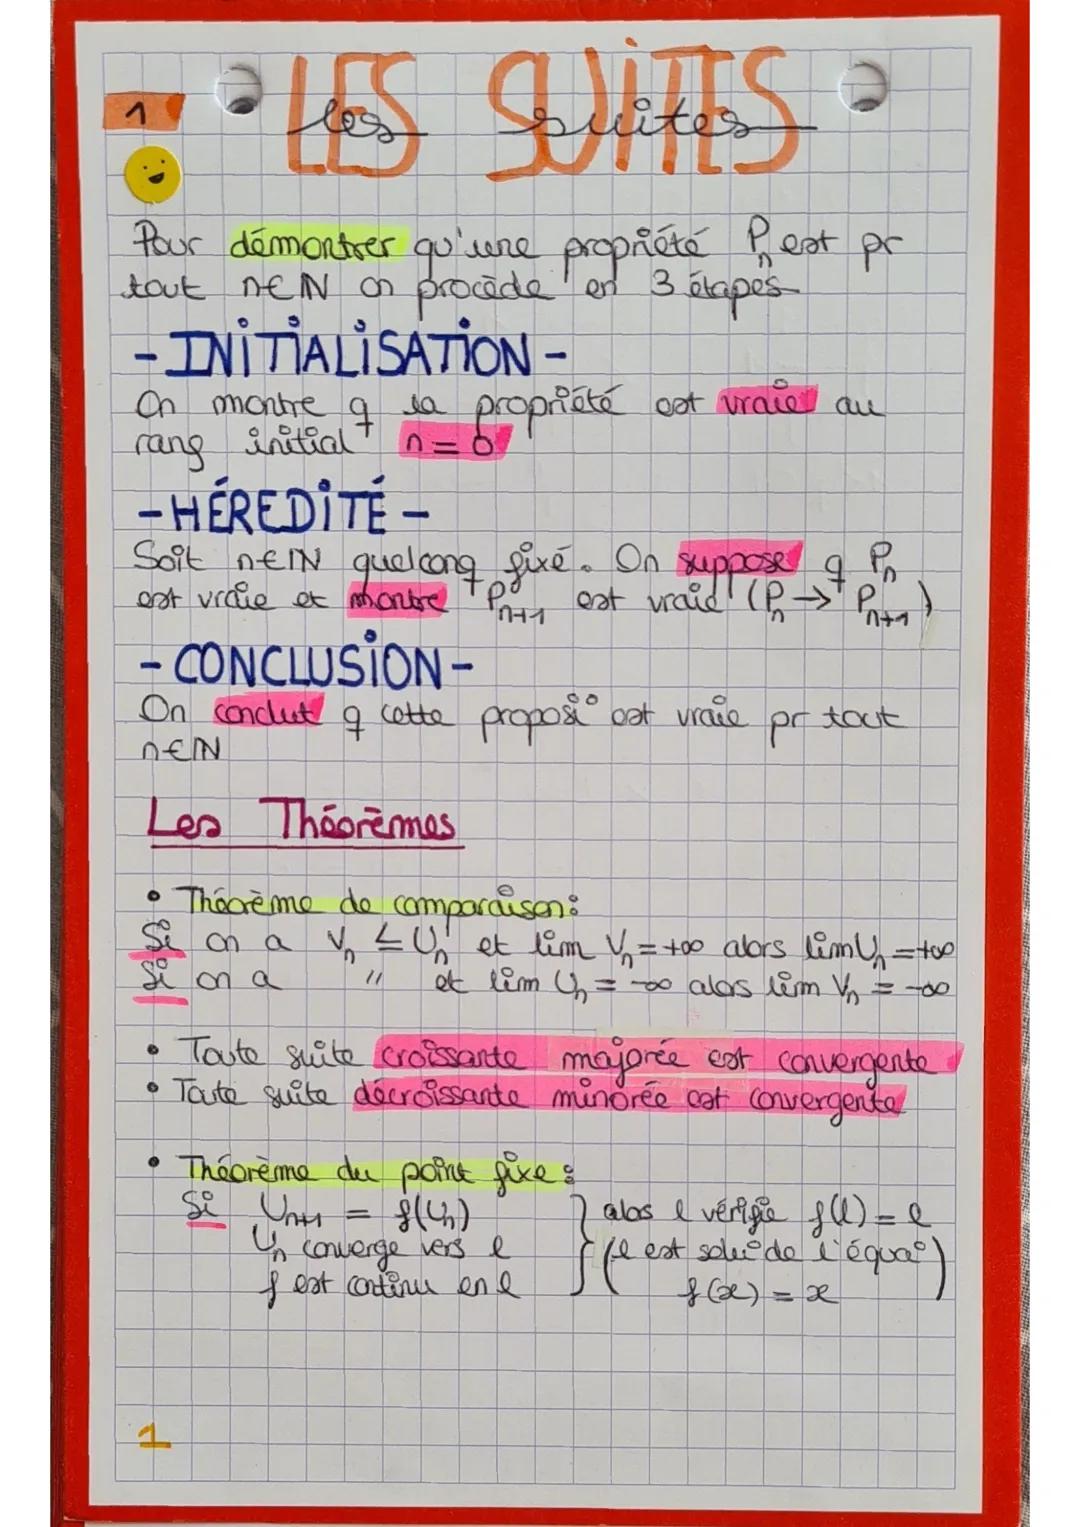 1
LES SUITES
les suites
Pour démontrer qu'une propriété Pn est pr
tout n∈ℕ on procède en 3 étapes
- INITIALISATION -
On montre q la propriété est vraie au
rang initial n = 0
- HÉREDITÉ -
Soit n∈ℕ quelconq fixé. On suppose q Pn
est vraie et montre q Pn+1 est vraie (Pn → Pn+1)
- CONCLUSION -
On conclut q cette proposi° est vraie pr tout
n∈ℕ
Les Théorèmes
• Théorème de comparaison:
Si on a Vn ≤ Un et lim Vn = +∞ alors lim Un = +∞
Si on a " et lim Un = -∞ alors lim Vn = -∞
• Toute suite croissante majorée est convergente
• Toute suite décroissante minorée est convergente
• Théorème du point fixe :
Si Un+1 = f(Un) } alos l vérifie f(l) = l
Un converge vers l (l est solu° de l'équa°)
f est continu en l f(x) = x
1